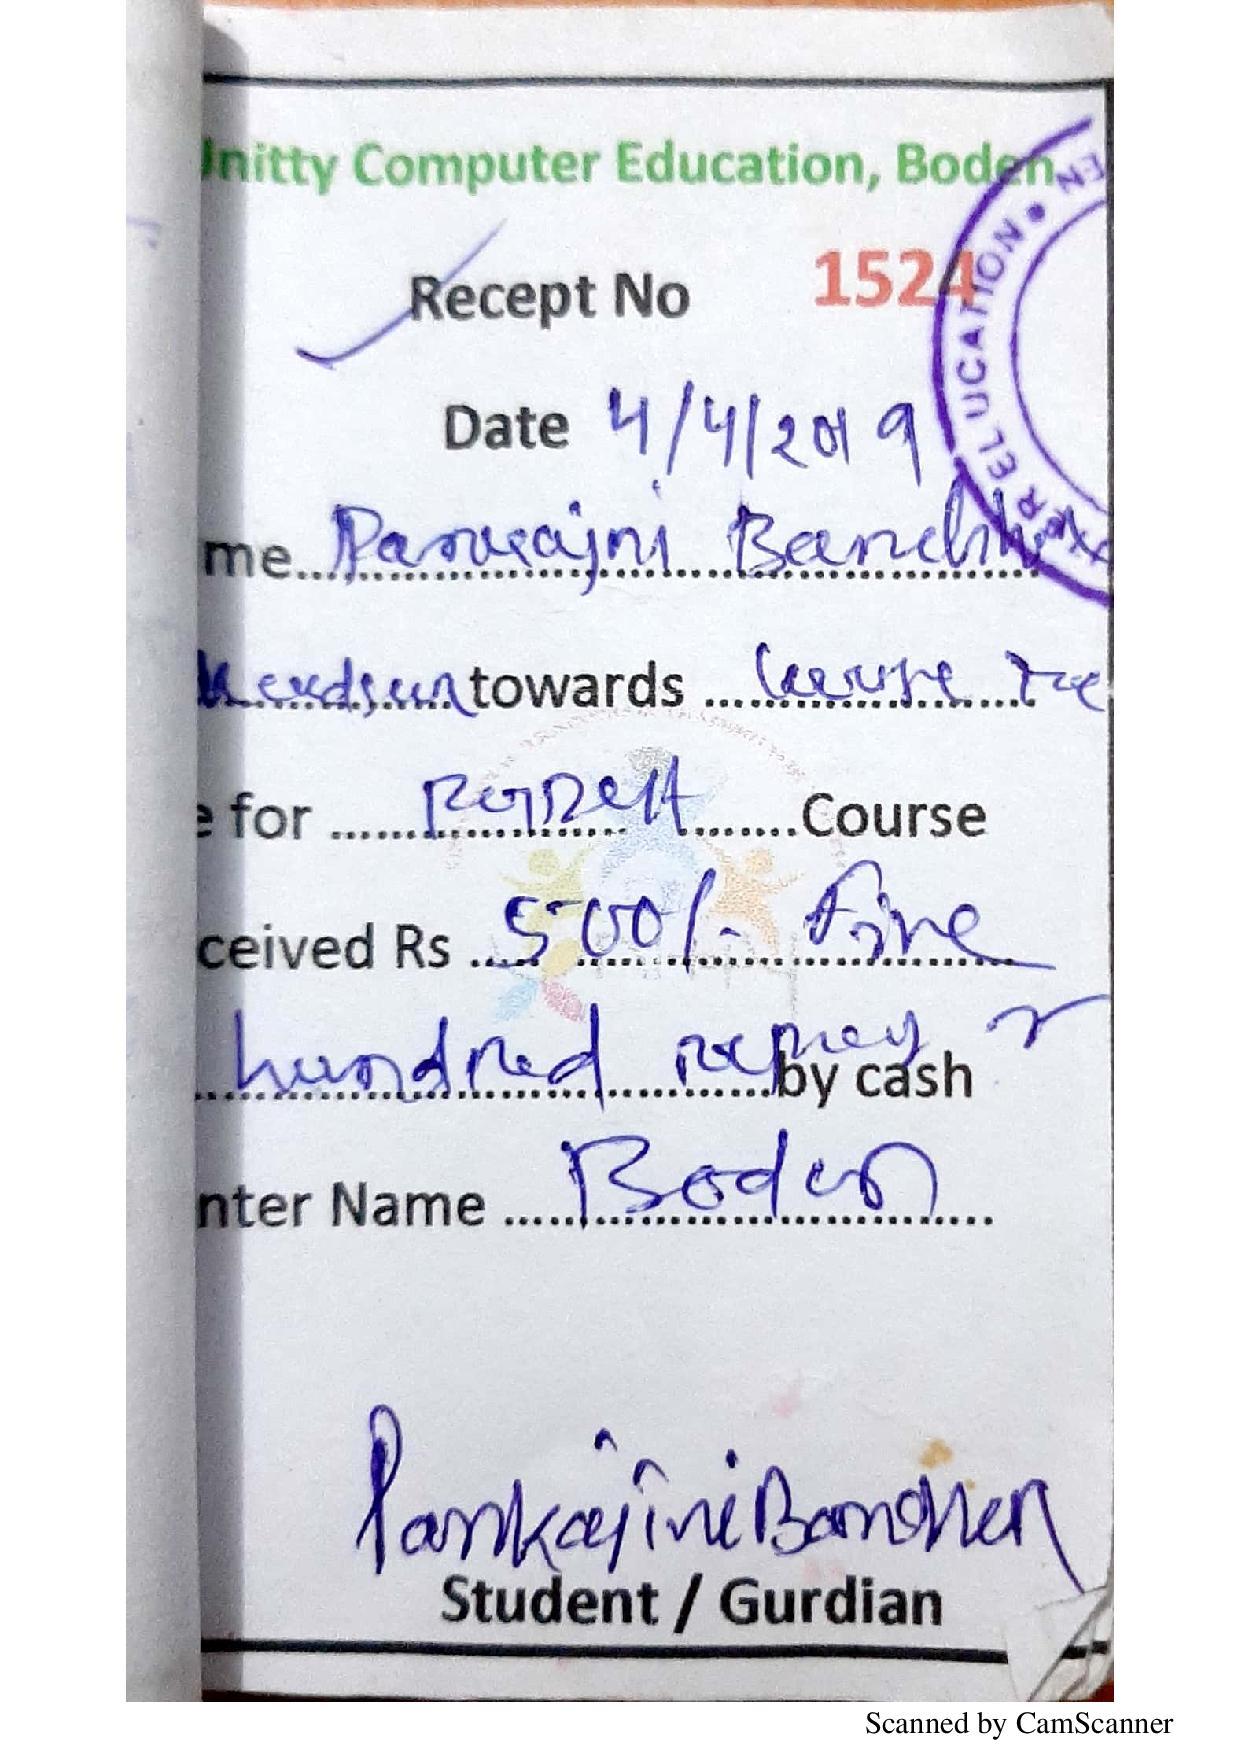 Unitty Computer Education, Boden
Recept No 1524
Date 4/4/2019
me.......... Bandhan
towards ... Course Fee
e for .......... Course
ceived Rs .... 500/- Five
hundred rupees by cash
nter Name .... Boden
Pankajini Bandhan
Student / Gurdian
UCATION • EN
Scanned by CamScanner